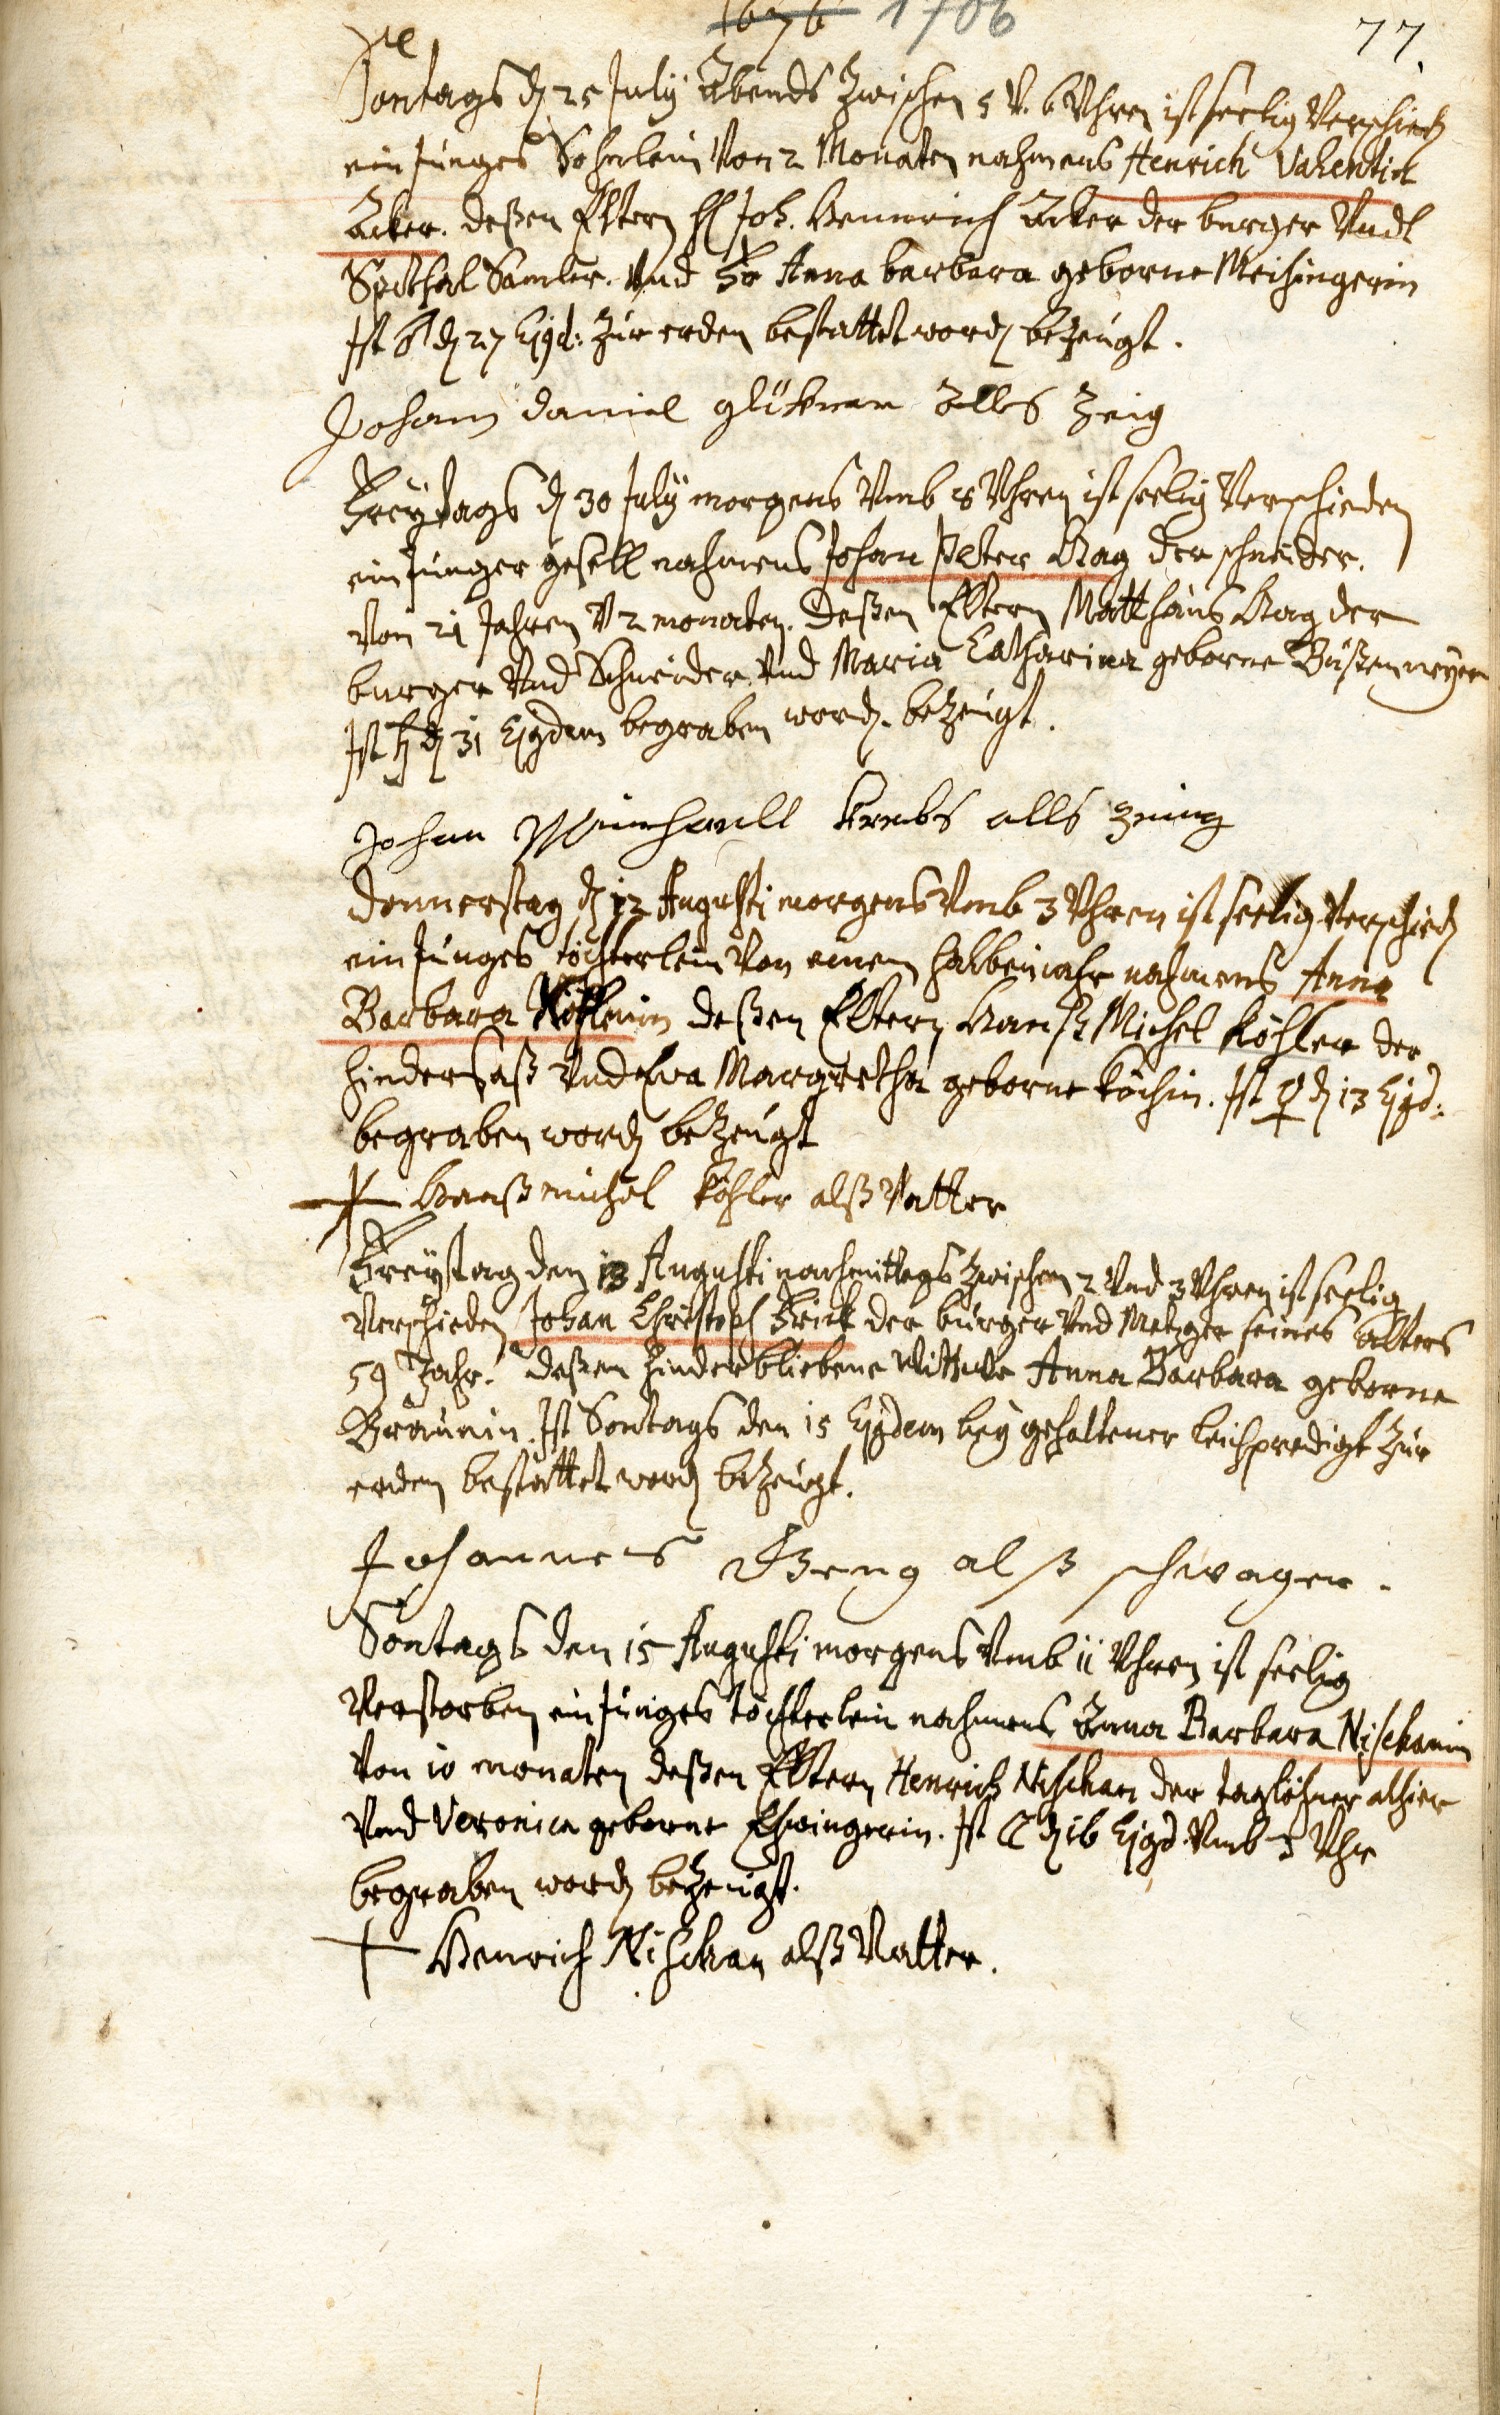 1676 1706
77.
Sontags d 25 July Abends Zwischen 5 V. 6 Uhren ist seelig Verschied
ein Junges Sohnlein Von 2 Monaten nahmens Henrich Valentin
Acker. deßen Eltern H Joh. Henrich Acker der burger Undt
Spithal Samler. Und Fr Anna barbara geborne Meisingerin
Ist ♂ d 27 Ejgd: Zur erden bestattet word bezeugt.
Johann daniel glückner Alls Zeig
Freytags d 30 July morgens Umb 8 Uhren ist seelig Verschieden
ein Junger gesell nahmens Johan Peter Hag der schneider.
Von 21 Jahren V 2 monaten. deßen Eltern Matthäus Hag der
burger Und Schneider. Und Maria Catharina geborne
Ist ♄ d 31 Ejgdem begraben word. bezeugt.
Johan Krebs alls zeuig
Donnerstag d 12 Augusti morgens Umb 3 Uhren ist seelig Verschied
ein Junges töchterlein Von einem halben Jahr nahmens Anna
Barbara deßen Eltern Hanß Michel Köhler der
hindersaß Und Eva Margretha geborne Köchin. Ist ♀ d 13 Ejgd:
begraben word bezeugt
Hanß michel Köhler alß Vatter
Freystag den 13 Augusti nachmittags Zwischen 2 Und 3 Uhren ist seelig
Verschieden Johan Christoph Frick der burger Und Metzger seines alters
59 Jahr. deßen hinderbliebene Wittwe Anna Barbara geborne
Braunin. Ist Sontags den 15 Ejgdem bey gehaltener leichpredigt Zur
erden bestattet word bezeugt.
Johannes Geng alß schwager.
Sontags den 15 Augusti morgens Umb 11 Uhren ist seelig
Verstorben ein Junges töchterlein nahmens Anna Barbara Nischanin
Von 10 monaten deßen Eltern Henrich Nischan der taglöhner alhier
Und Veronica geborne Ehringerin. Ist ☾ d 16 Ejgd Umb 3 Uhr
begraben word bezeugt.
Henrich Nischan alß Vatter.